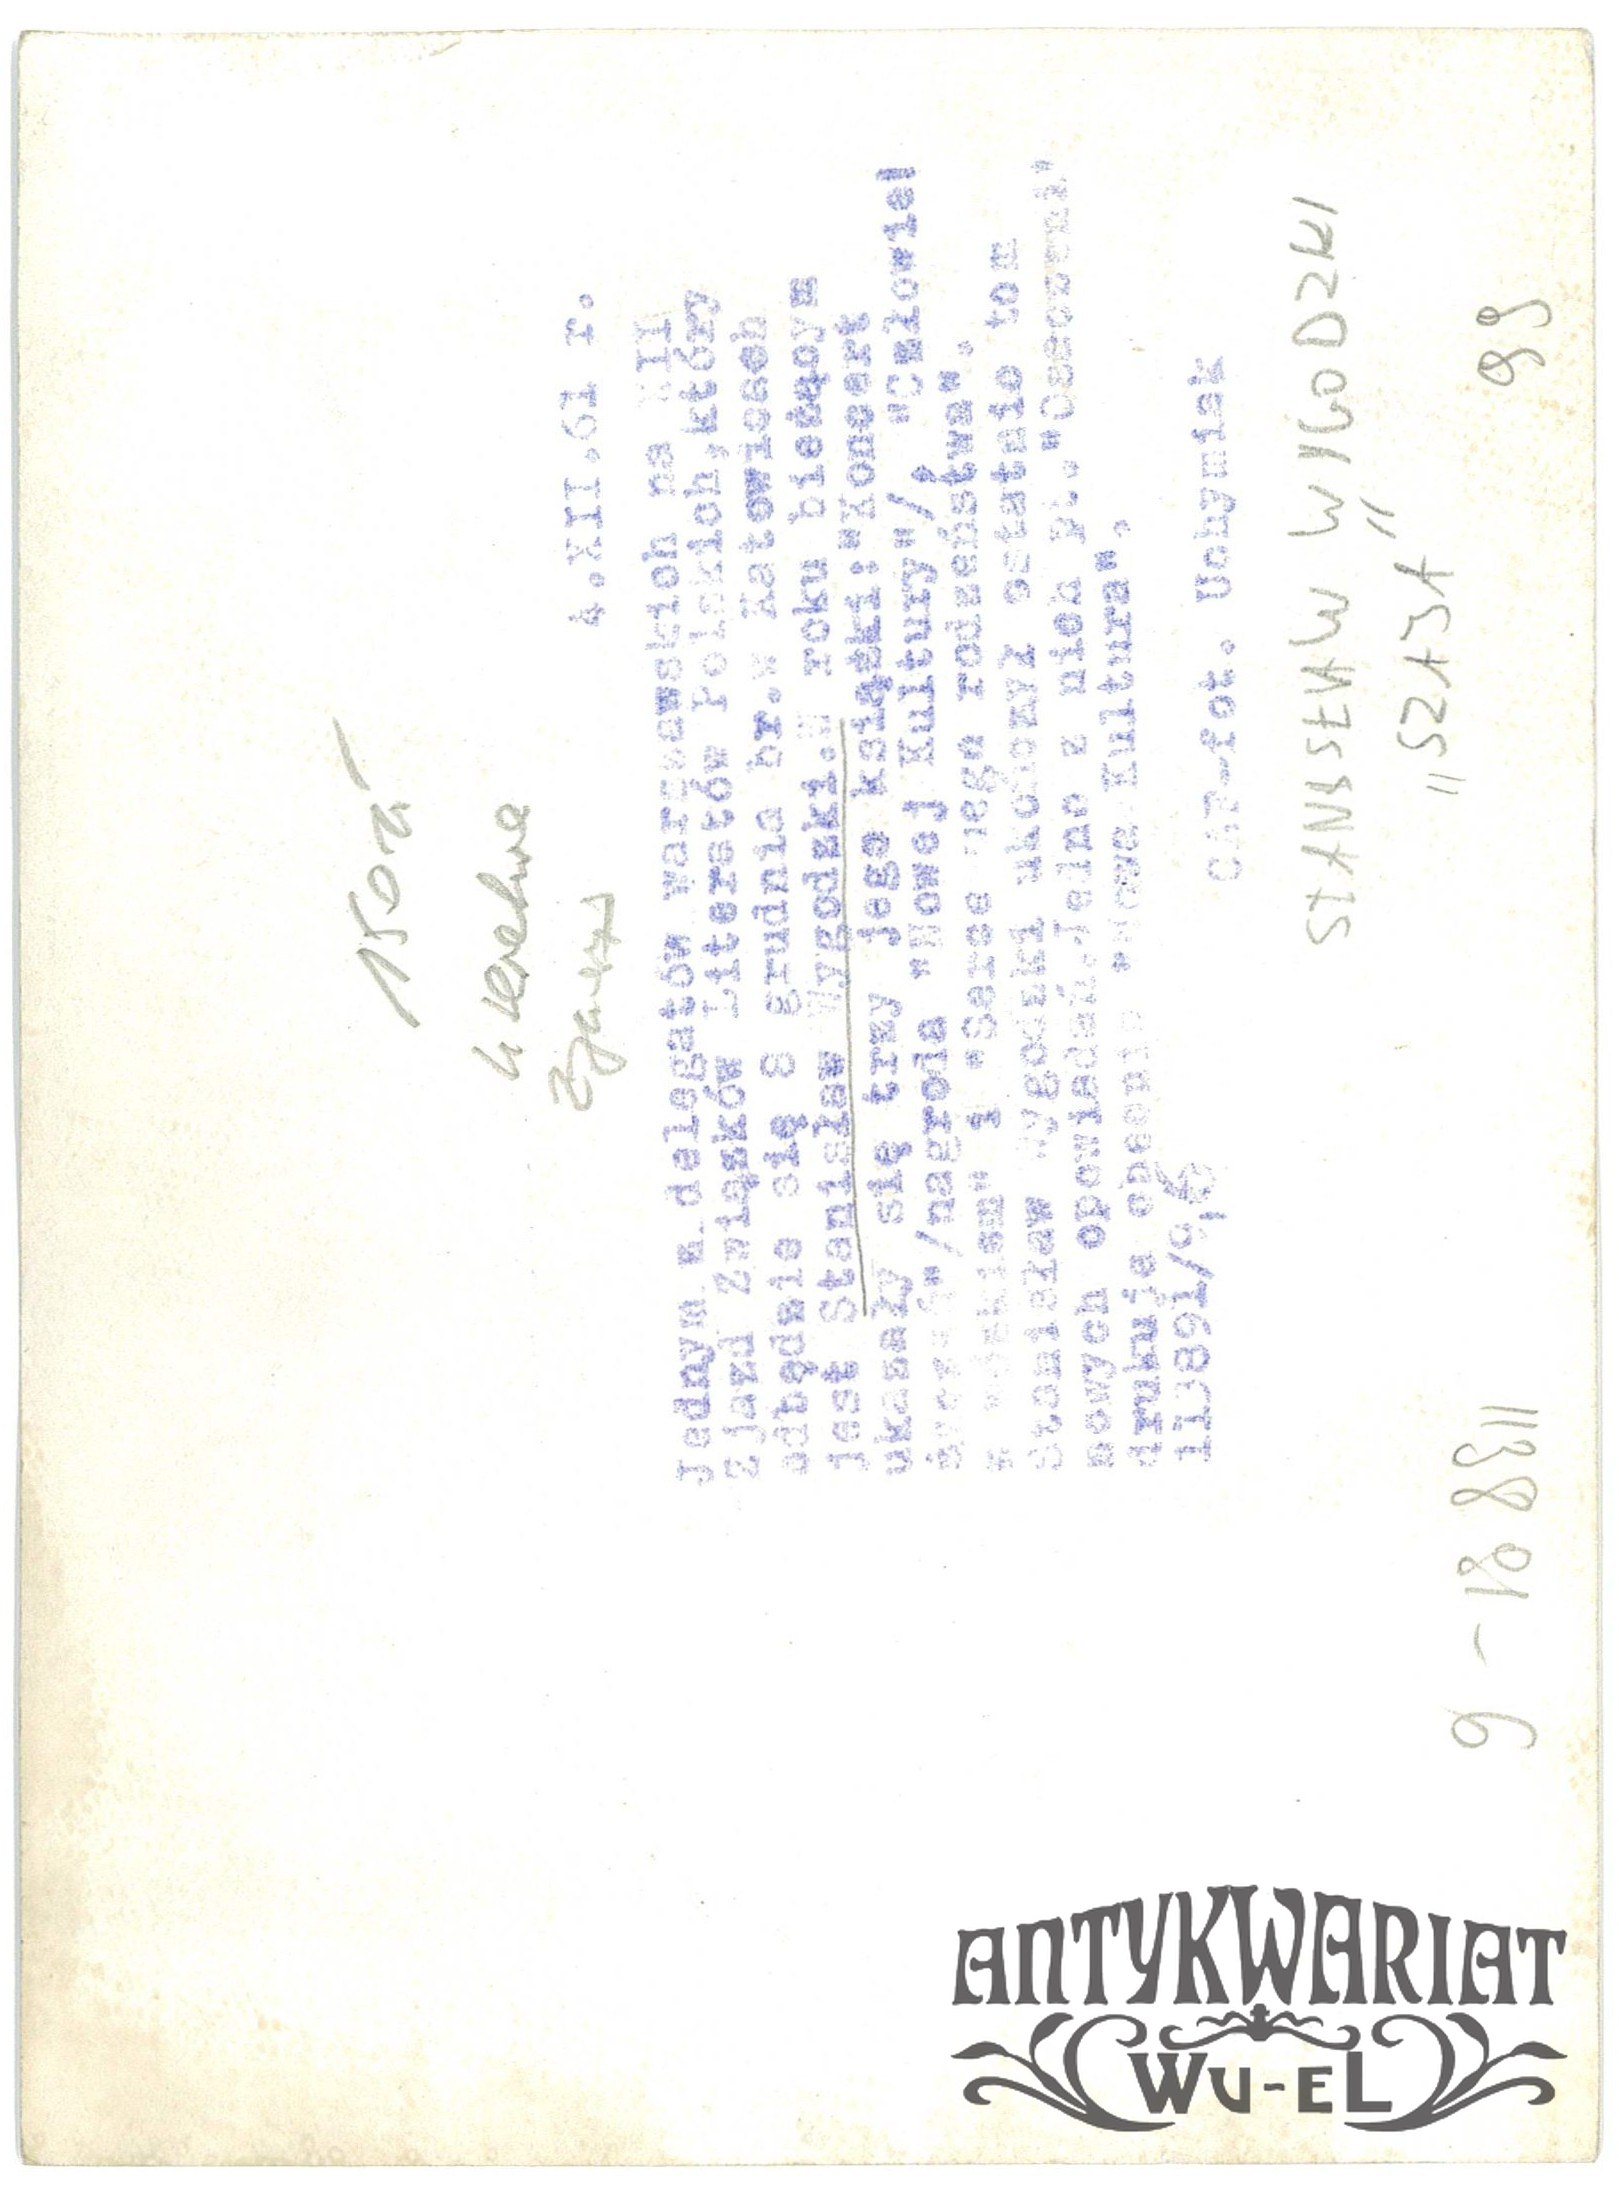 150 zł
4.XII.61 r.
Jednym z delegatów warszawskich na XII
Zjazd Związków Literatów Polskich,który
odbędzie się 8 grudnia br.w Katowicach
jest Stanisław Wygodzki.W roku bieżącym
ukazały się trzy jego książki:"Koncert
"/nagroda "Nowej Kultury"/, "Człowiek
z wózkiem" i "Serce mego rodzeństwa".
Stanisław Wygodzki ukończył ostatnio tom
nowych opowiadań.Jedno z nich pt.
drukuje obecnie "Nowa Kultura".
CAF-fot. Uchymiak
STANISŁAW WYGODZKI
"SZAJA"
99
9-188811
ANTYKWARIAT
WU-EL